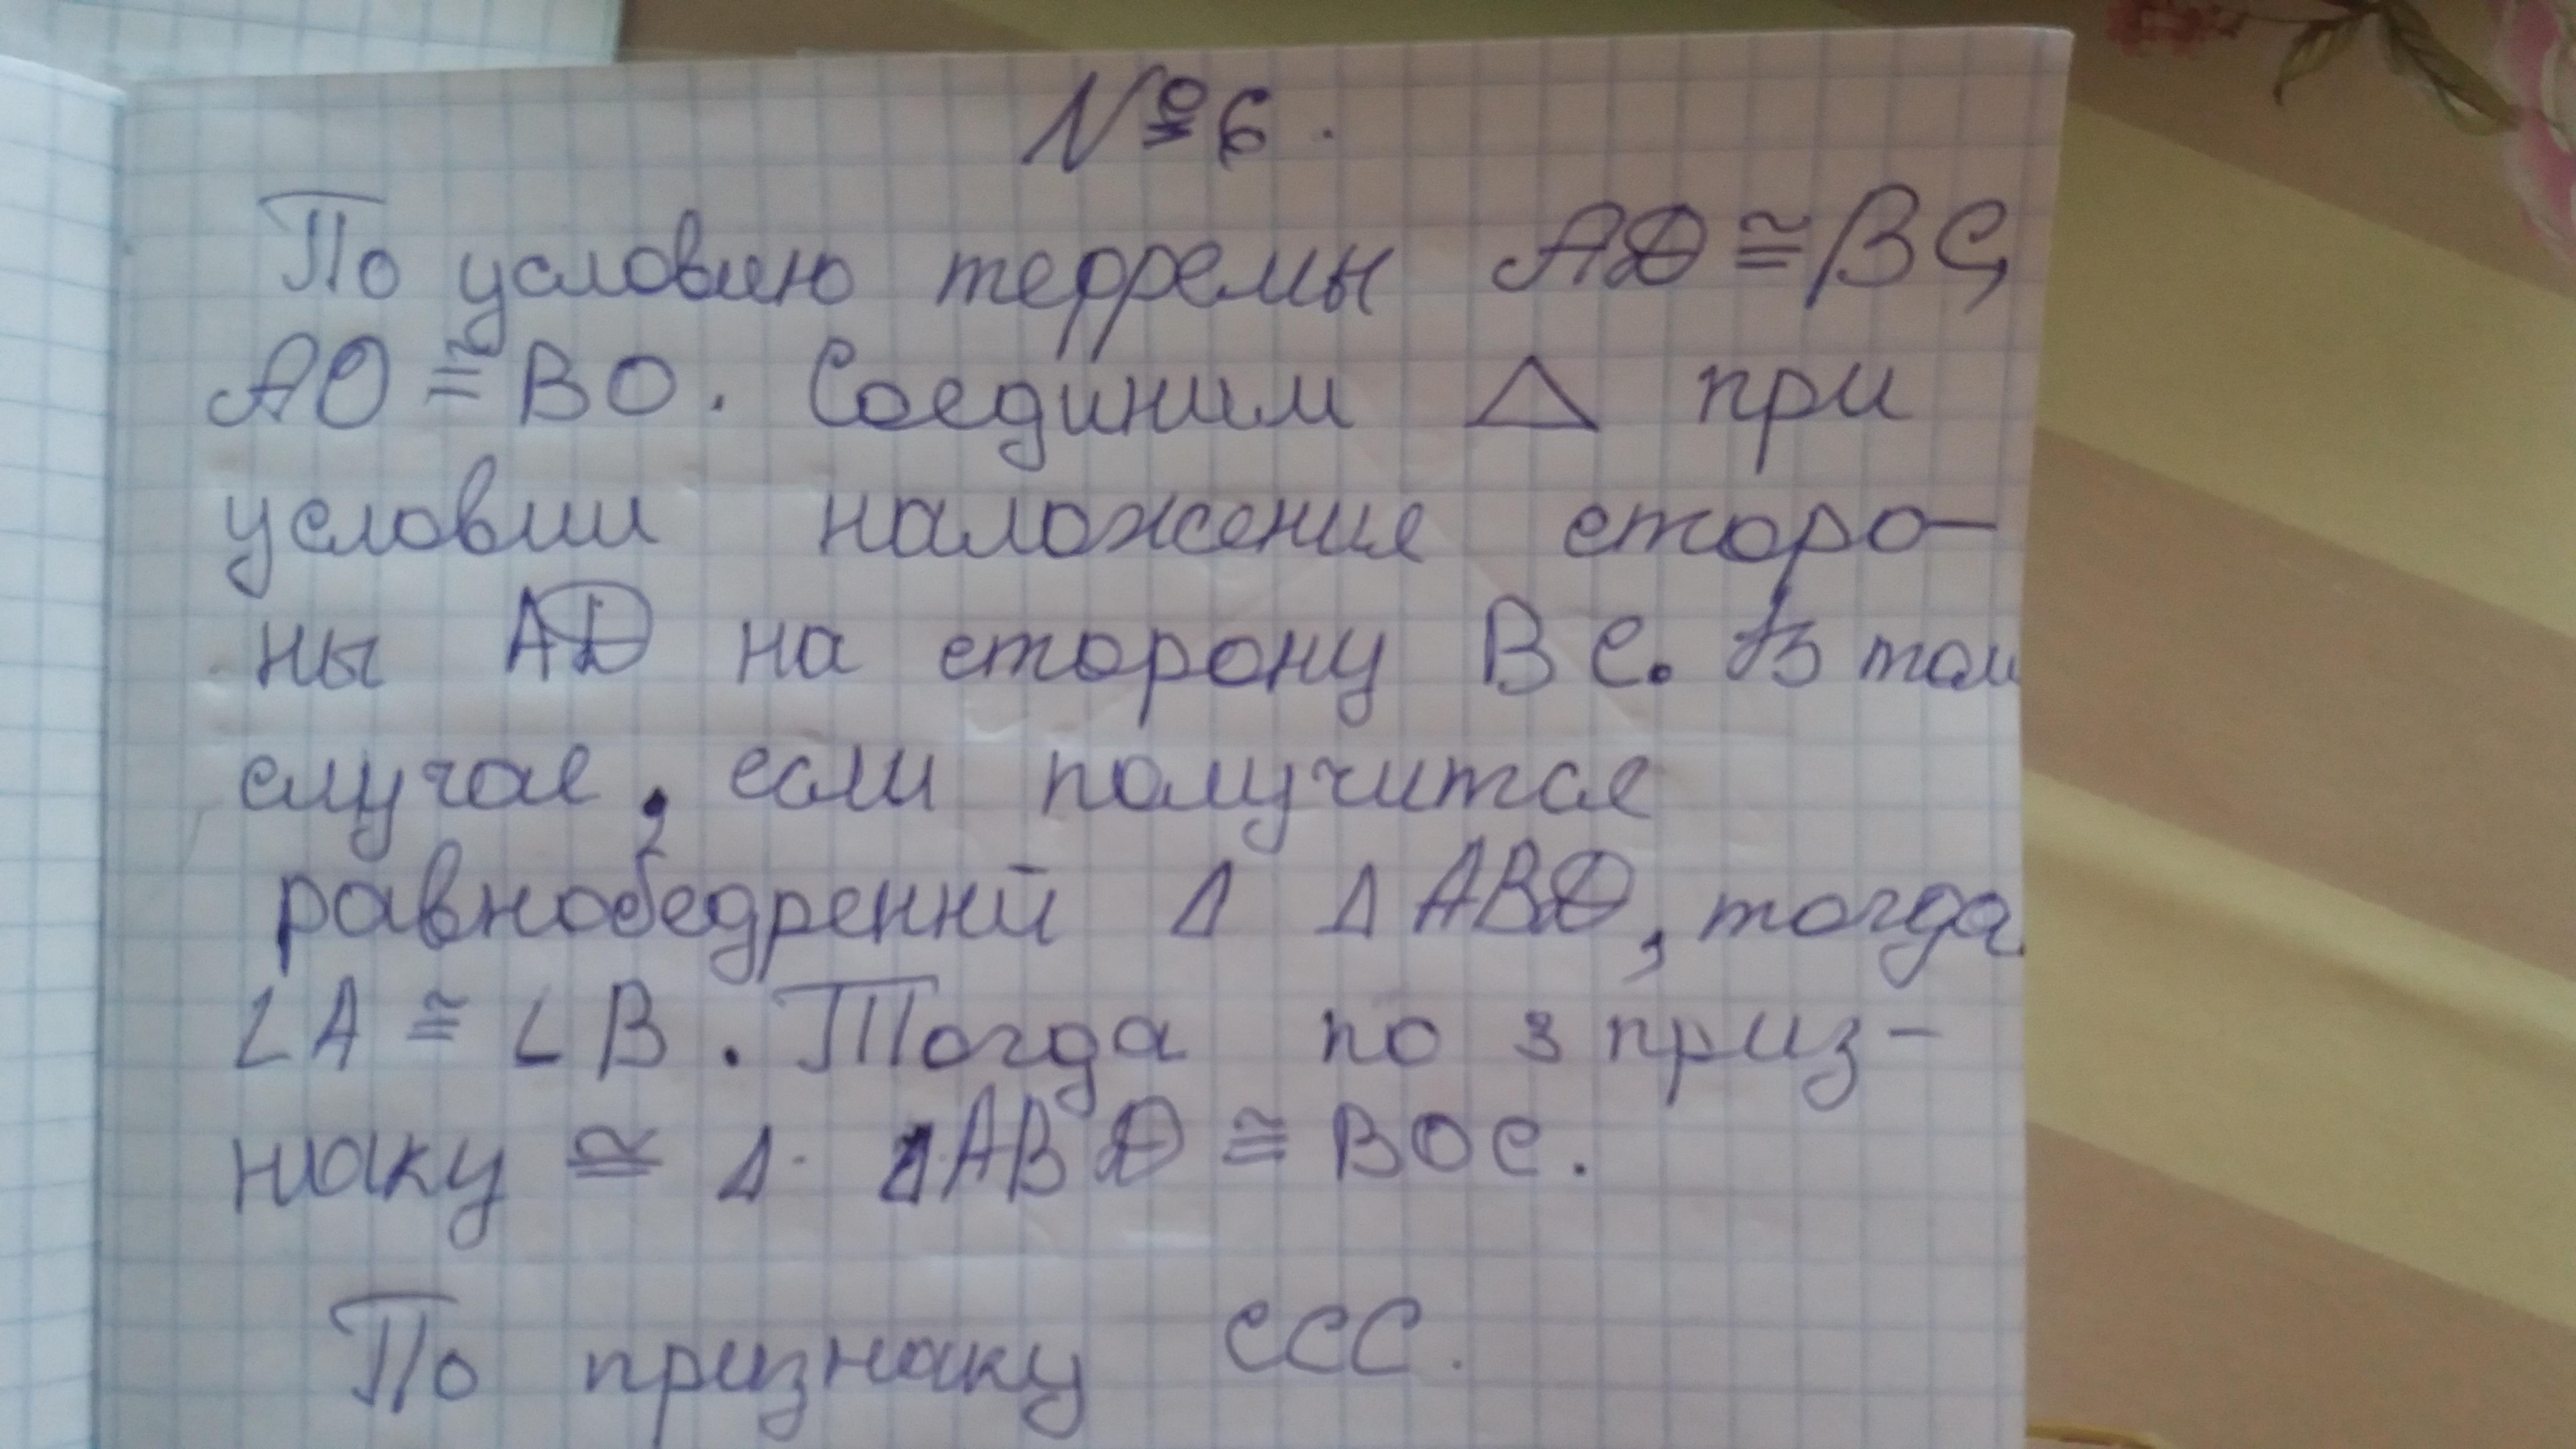 №6.
По условию терремы AD ≅ BC,
AO ≅ BO. Соединим △ при
условии наложения сторо-
ны AD на сторону BC. В том
случае, если получится
равнобедренй △ △ ABD, тогда
∠A ≅ ∠B. Тогда по 3 приз-
наку ≅ △. △ABD ≅ BOC.
По признаку ССС.